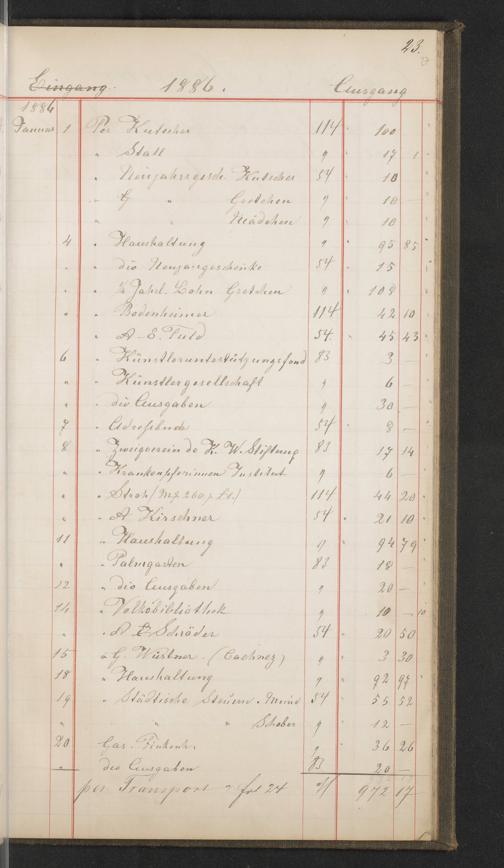 23.
Eingang 1886. Ausgang
1886
Januar 1 Per Kutscher 114 100
" Stall " 17 1
" Neujahrsgesch. Kutscher 54 10
" G " Gretchen " 10 —
" " Mädchen " 10
4 " Haushaltung " 95 85
" " div Neujargeschenke 54 15
" " ½ Jahrl. Lohn Gretchen " 108
" " Bodenheimer 114 42 10
" " A. E. Fuld 54 45 43
6 " Künstlerunterstützungsfond 83 3 —
" " Künstlergesellschaft " 6 —
" " div Ausgaben " 30 —
7 " Adressbuch 54 8 —
8 " Zweigverein de K. W. Stiftung 83 17 14
" " Krankenpflerinnen Institut " 6 —
" " Stroh 114 44 20
" " A Kirschner 54 21 10
11 " Haushaltung " 94 79
" " Palmgarten 83 18 —
12 " div Ausgaben " 20 —
14 " Volksbibliothek " 10 — 10
" " Schräder 54 20 50
15 " G. Wüstner (Cachnez) " 3 30
18 " Haushaltung " 92 97
19 " Städtische Steuern 54 55 52
" " " " Schober " 12 —
20 Gas. " 36 26
" div Ausgaben 83 20 —
per Transport fol 24 972 17